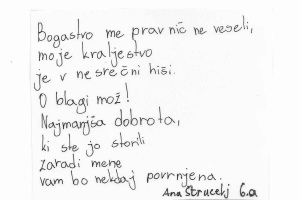 Bogastvo me prav nič ne veseli,
moje kraljestvo
je v nesrečni hiši.
O blagi mož!
Najmanjša dobrota,
ki ste jo storili
zaradi mene
vam bo nekdaj povrnjena.
Ana Strucelj 6.a